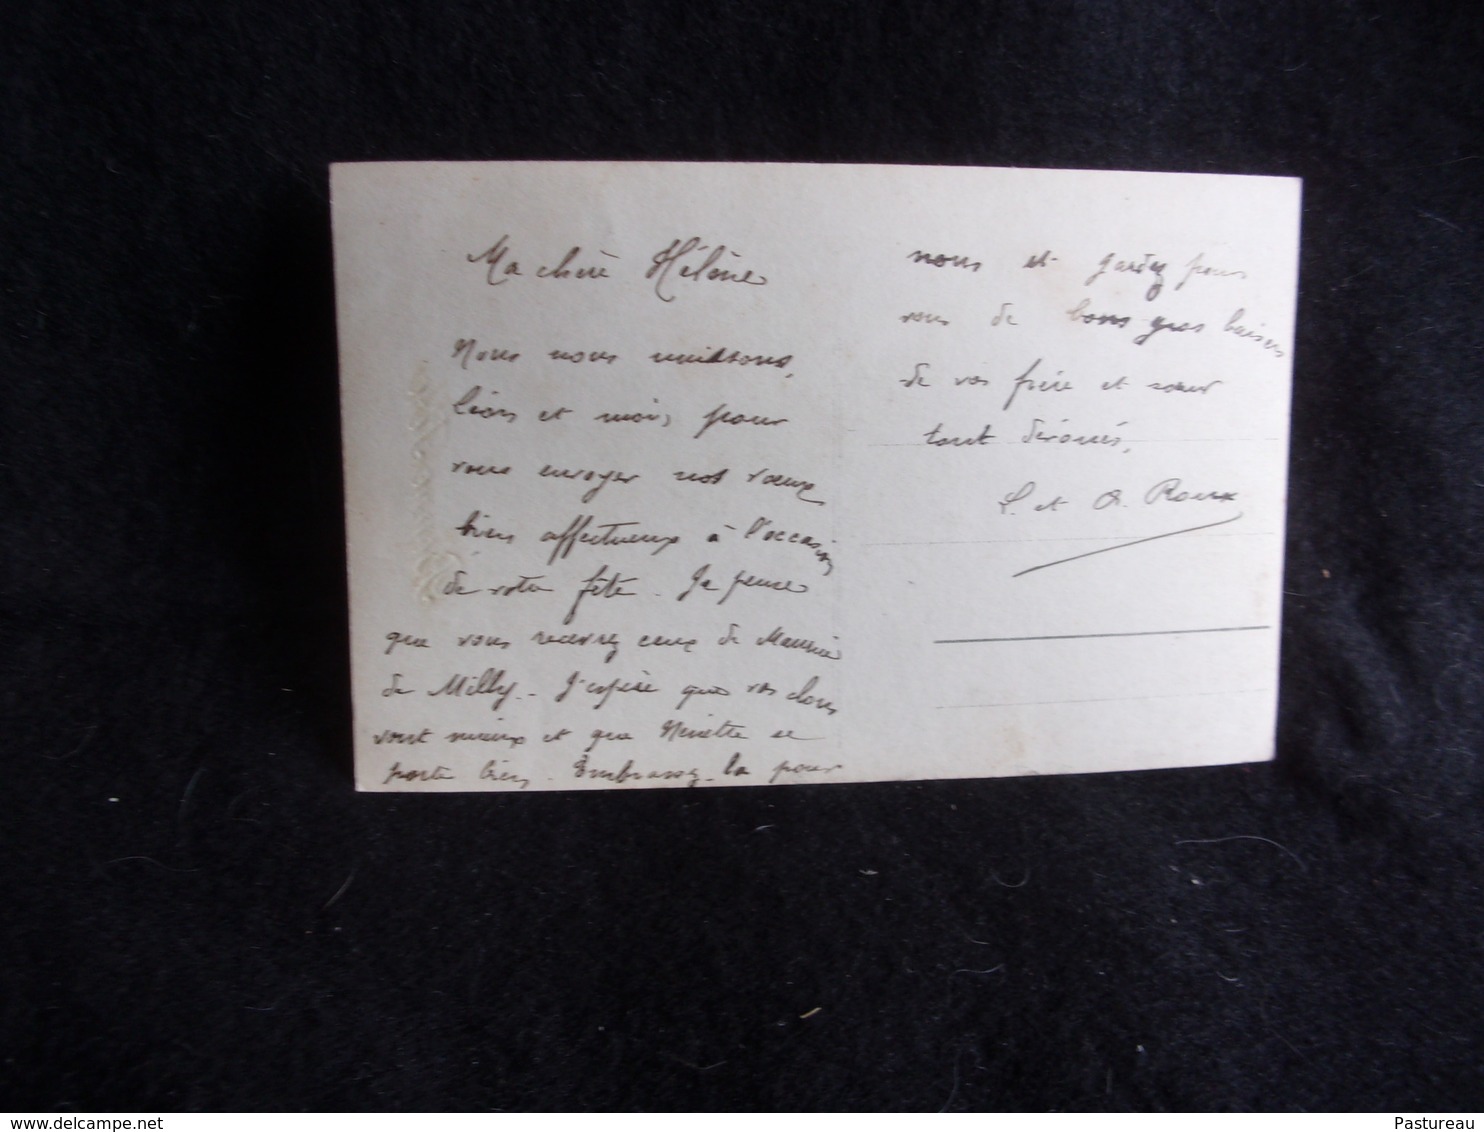 Ma chère Hélène
Nous nous unissons,
Léon et moi, pour
vous envoyer nos vœux
bien affectueux à l'occasion
de votre fête. Je pense
que vous recevrez ceux de Maurice
de Milly. J'espère que vos clous
vont mieux et que Ninette se
porte bien. Embrassez-la pour
nous et gardez pour
vous de bons gros baisers
de vos frère et sœur
tout dévoués,
L. et A. Roux
Pastureau